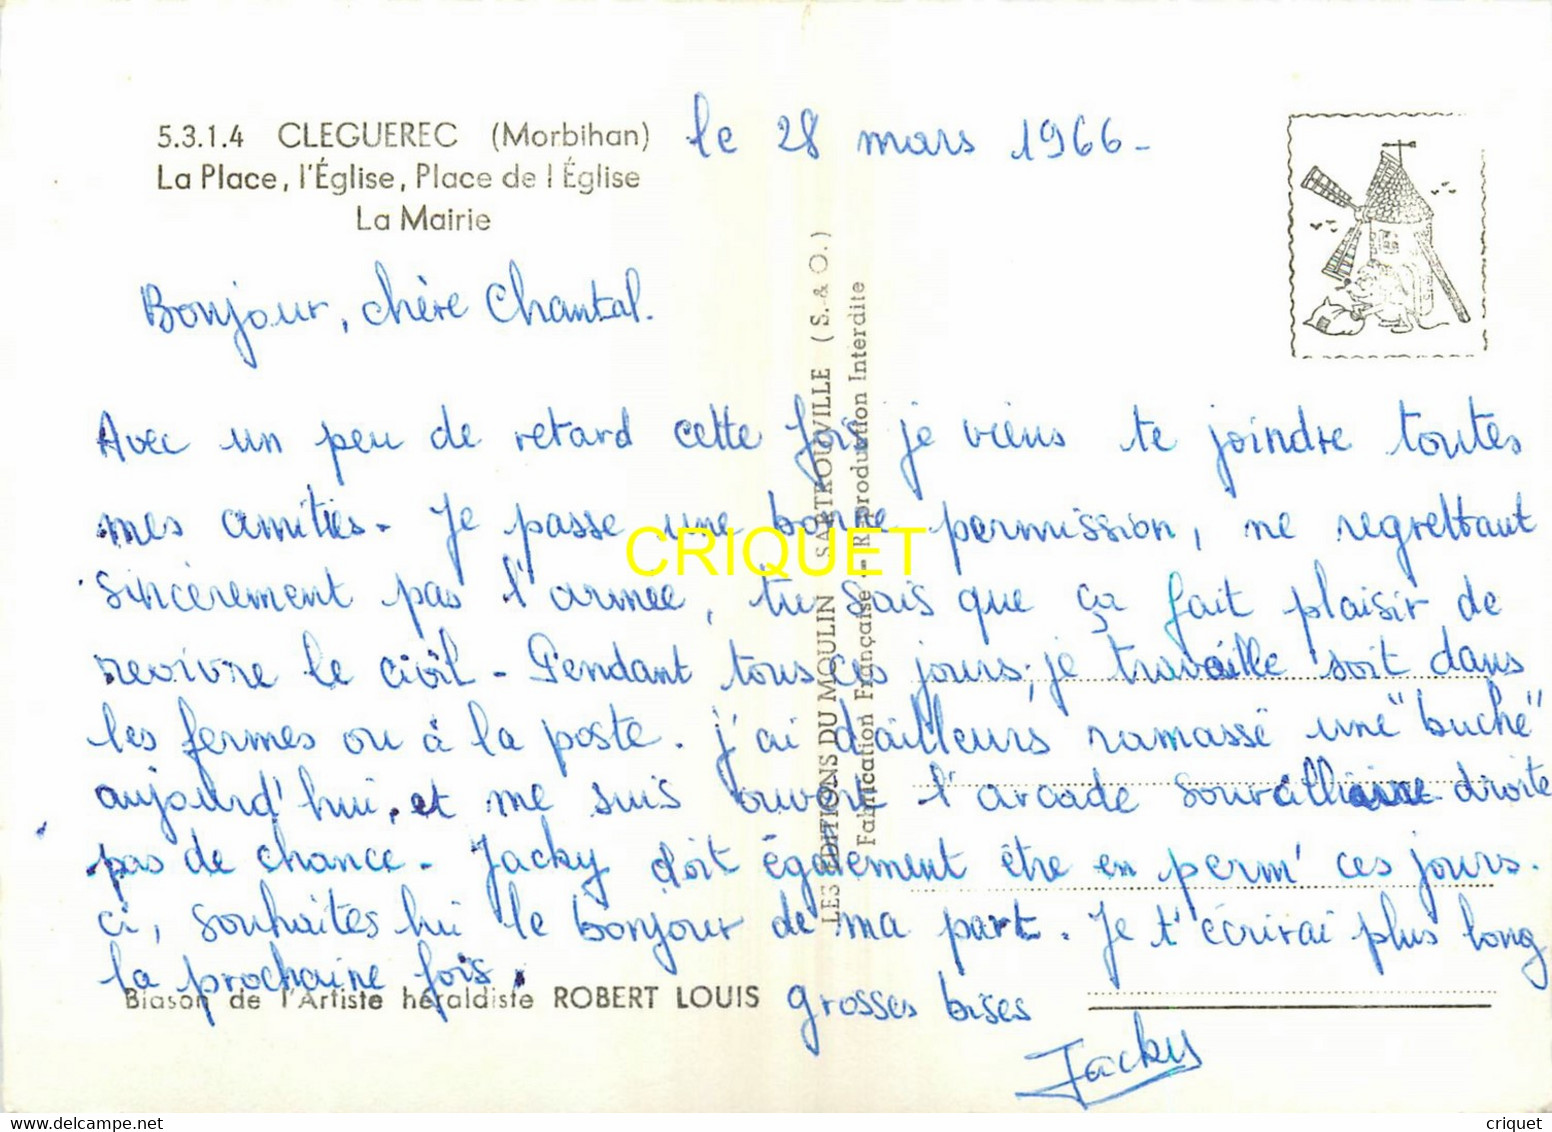 5.3.1.4 CLEGUEREC (Morbihan)
La Place, l'Église, Place de l'Église
La Mairie
le 28 mars 1966 -
Bonjour, chère Chantal.
Avec un peu de retard cette fois je viens te joindre toutes
mes amitiés - Je passe une bonne permission, ne regrettant
sincèrement pas l'armée, tu sais que ça fait plaisir de
revivre le civil - Pendant tous ces jours, je travaille soit dans
les fermes ou à la poste. j'ai d'ailleurs ramassé une "buche"
aujourd'hui, et me suis ouvert l'arcade sourcilliaire droite
pas de chance - Jacky doit également être en perm' ces jours.
ci, souhaites lui le bonjour de ma part. Je t'écrirai plus long
la prochaine fois.
grosses bises
Jacky
Blason de l'Artiste héraldiste ROBERT LOUIS
LES EDITIONS DU MOULIN SARTROUVILLE (S. & O.)
Fabrication Française - Reproduction Interdite
CRIQUET
www.delcampe.net
criquet